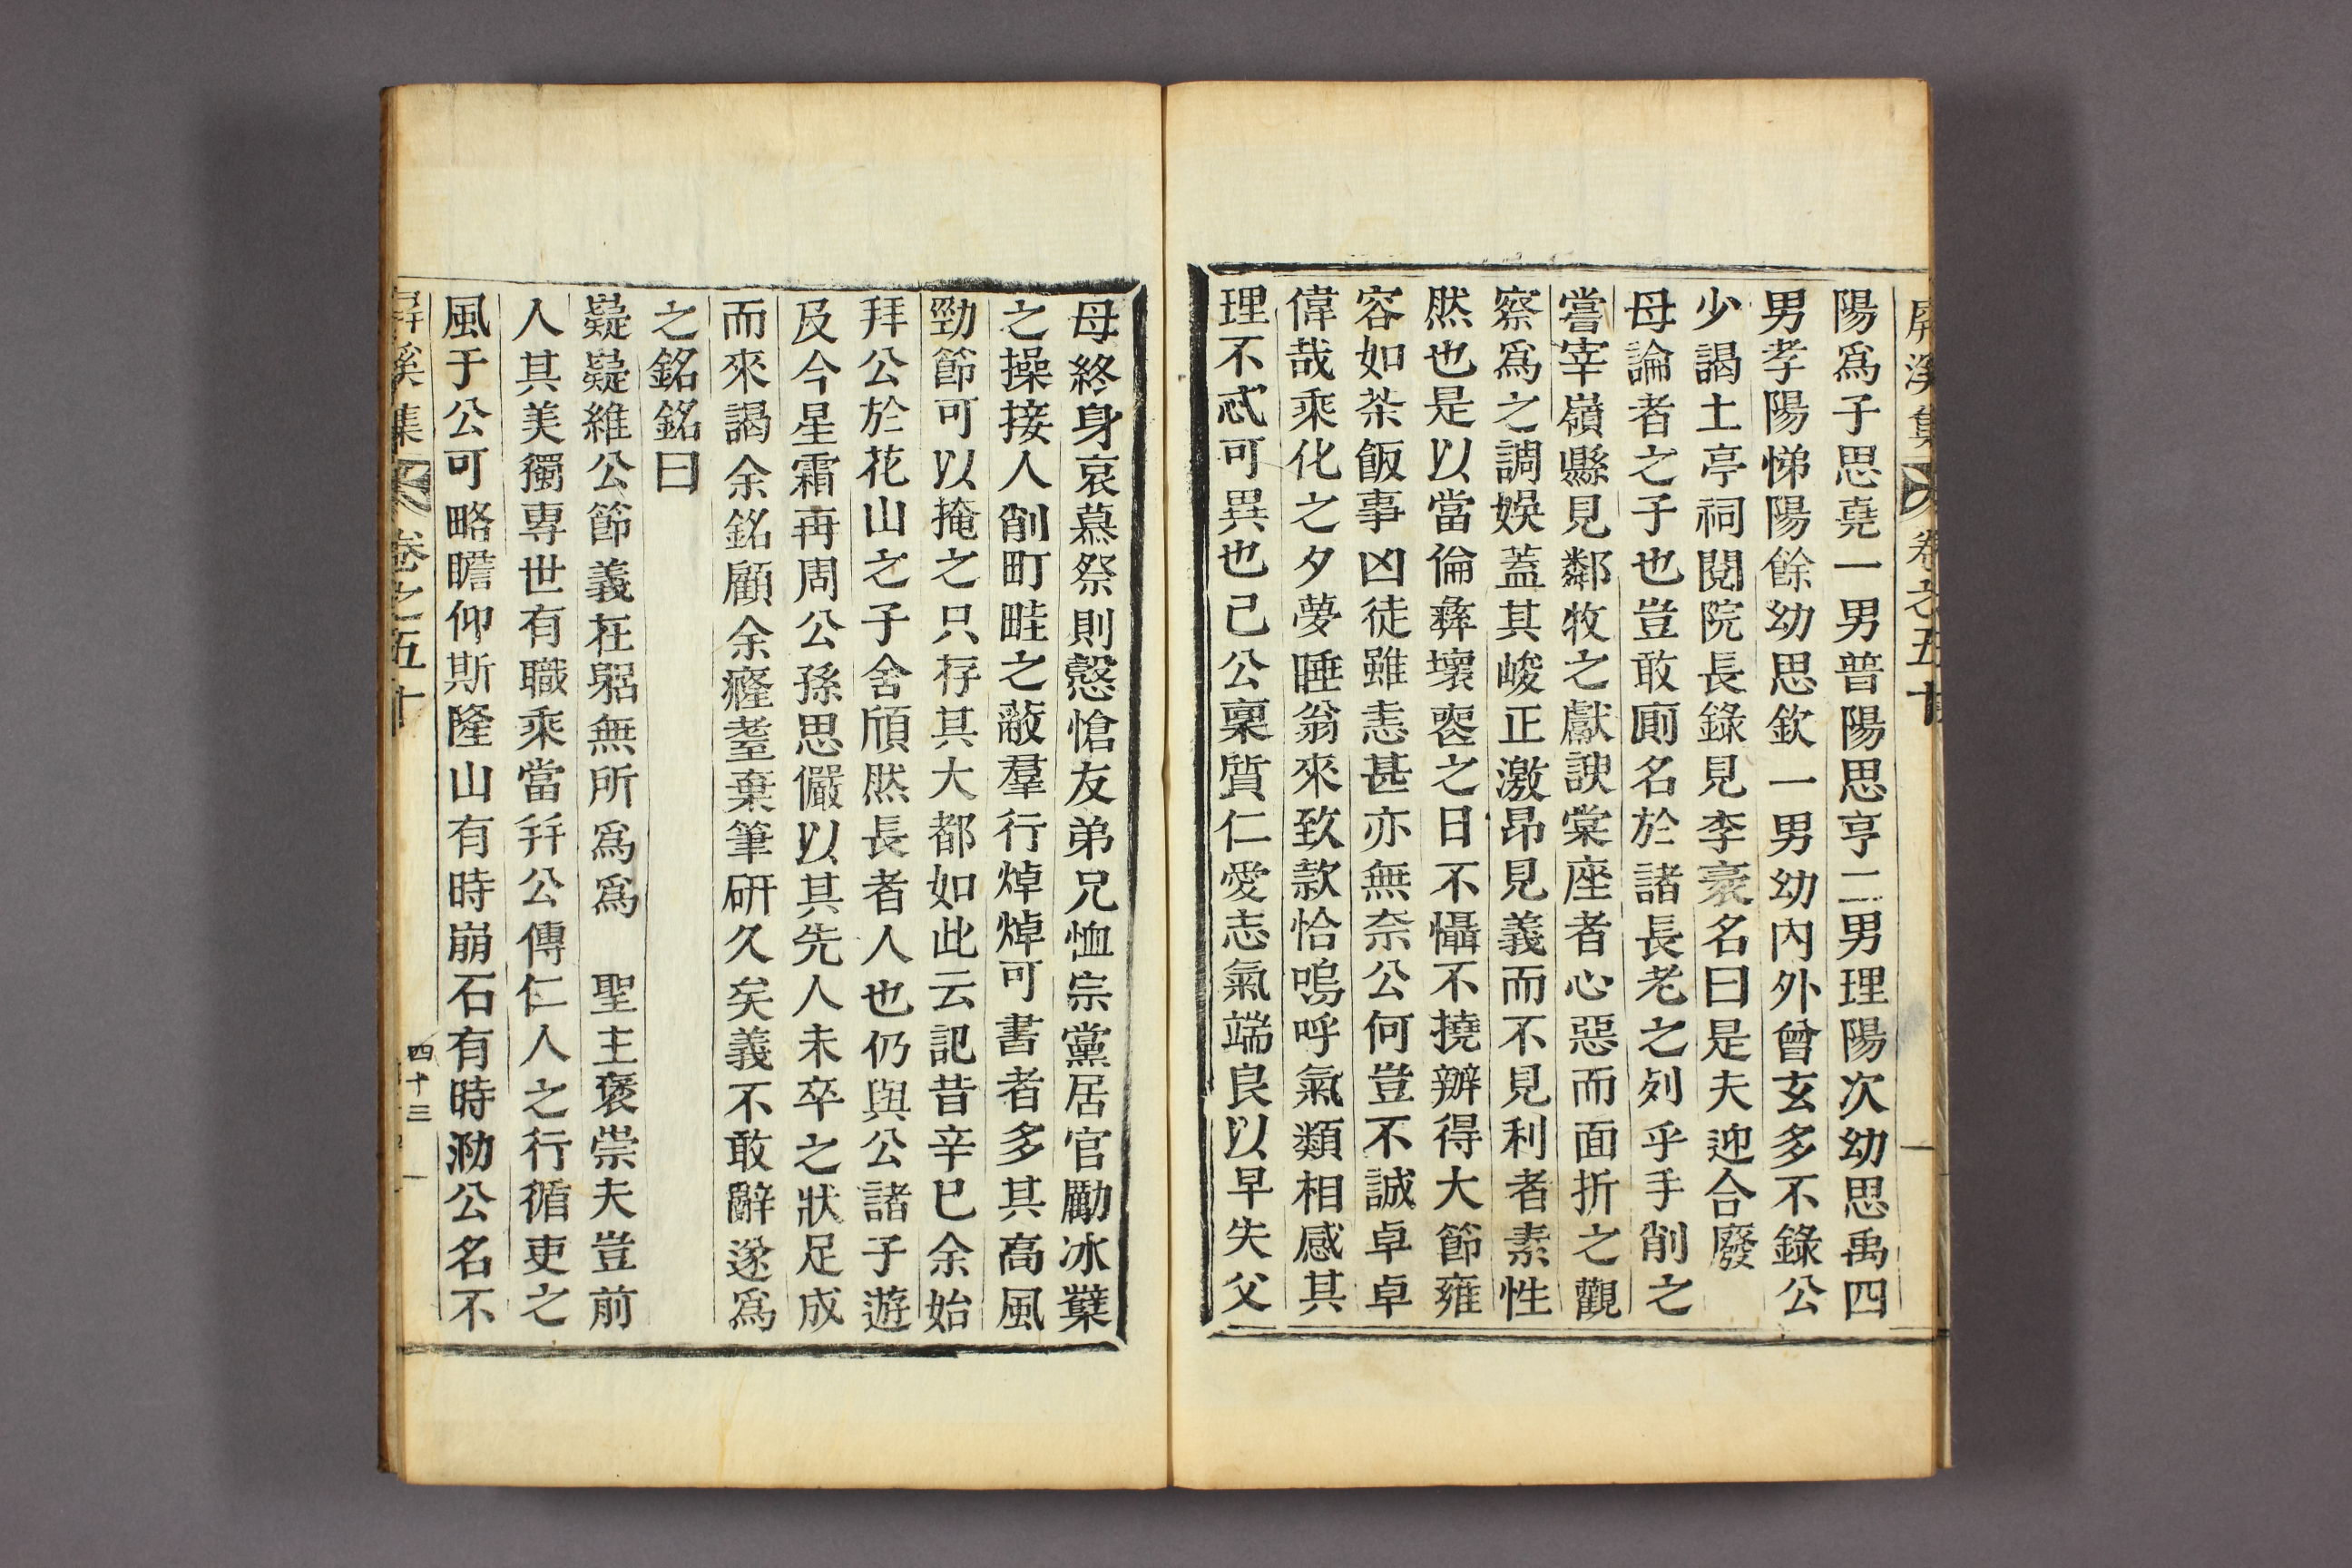 屏溪集 卷之五十
陽爲子思堯一男普陽思亨二男理陽次幼思禹四
男孝陽悌陽餘幼思欽一男幼內外曾玄多不錄公
少謁土亭祠閱院長錄見李袤名曰是夫迎合廢
母論者之子也豈敢廁名於諸長老之列乎手削之
嘗宰嶺縣見鄰牧之獻諛棠座者心惡而面折之觀
察爲之調娛蓋其峻正激昂見義而不見利者素性
然也是以當倫彝壞喪之日不懾不撓辦得大節雍
容如茶飯事凶徒雖恚甚亦無奈公何豈不誠卓卓
偉哉乘化之夕夢睡翁來致款恰嗚呼氣類相感其
理不忒可異也已公稟質仁愛志氣端良以早失父
母終身哀慕祭則慤愴友弟兄恤宗黨居官勵冰蘗
之操接人削町畦之蔽羣行焯焯可書者多其高風
勁節可以掩之只存其大都如此云記昔辛巳余始
拜公於花山之子舍頎然長者人也仍與公諸子遊
及今星霜再周公孫思儼以其先人未卒之狀足成
而來謁余銘顧余癃耋棄筆硏久矣義不敢辭遂爲
之銘銘曰
嶷嶷維公節義在躬無所爲爲 聖主褒崇夫豈前
人其美獨專世有職乘當幷公傳仁人之行循吏之
風于公可略瞻仰斯隆山有時崩石有時泐公名不
屏溪集 卷之五十 四十三